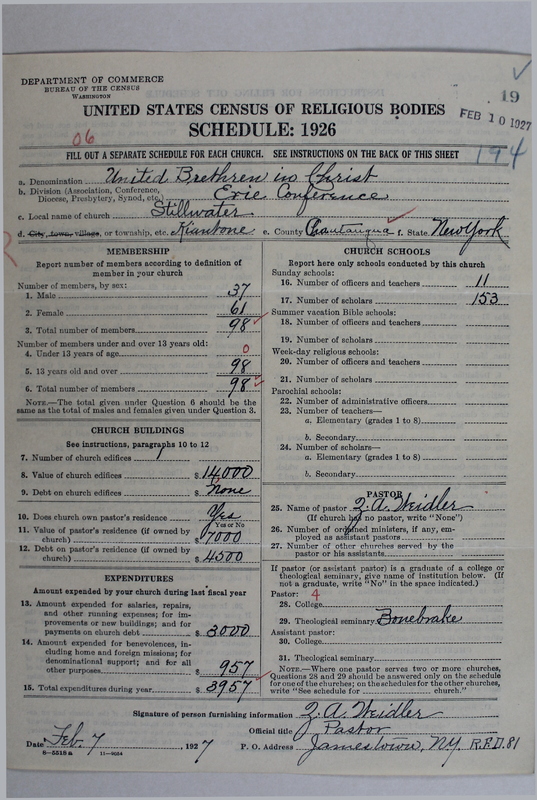 DEPARTMENT OF COMMERCE
BUREAU OF THE CENSUS
WASHINGTON
19
FEB 10 1927
UNITED STATES CENSUS OF RELIGIOUS BODIES
SCHEDULE: 1926
06
194
FILL OUT A SEPARATE SCHEDULE FOR EACH CHURCH. SEE INSTRUCTIONS ON THE BACK OF THIS SHEET
a. Denomination United Brethren in Christ
b. Division (Association, Conference, Diocese, Presbytery, Synod, etc.) Erie Conference
c. Local name of church Stillwater
d. City, town, village, or township, etc. Kiantone e. County Chautauqua f. State New York
MEMBERSHIP
Report number of members according to definition of
member in your church
Number of members, by sex:
1. Male 37
2. Female 61
3. Total number of members 98
Number of members under and over 13 years old:
4. Under 13 years of age 0
5. 13 years old and over 98
6. Total number of members 98
NOTE.—The total given under Question 6 should be the
same as the total of males and females given under Question 3.
CHURCH BUILDINGS
See instructions, paragraphs 10 to 12
7. Number of church edifices 1
8. Value of church edifices $ 14000
9. Debt on church edifices $ none
10. Does church own pastor's residence Yes
Yes or No
11. Value of pastor's residence (if owned by
church) $ 7000
12. Debt on pastor's residence (if owned by
church) $ 4500
EXPENDITURES
Amount expended by your church during last fiscal year
13. Amount expended for salaries, repairs,
and other running expenses; for im-
provements or new buildings; and for
payments on church debt $ 3000
14. Amount expended for benevolences, in-
cluding home and foreign missions; for
denominational support; and for all
other purposes $ 957
15. Total expenditures during year $ 3957
CHURCH SCHOOLS
Report here only schools conducted by this church
Sunday schools:
16. Number of officers and teachers 11
17. Number of scholars 153
Summer vacation Bible schools:
18. Number of officers and teachers
19. Number of scholars
Week-day religious schools:
20. Number of officers and teachers
21. Number of scholars
Parochial schools:
22. Number of administrative officers
23. Number of teachers—
a. Elementary (grades 1 to 8)
b. Secondary
24. Number of scholars—
a. Elementary (grades 1 to 8)
b. Secondary
PASTOR
25. Name of pastor Z. A. Weidler
(If church has no pastor, write "None")
26. Number of ordained ministers, if any, em-
ployed as assistant pastors
27. Number of other churches served by the
pastor or his assistants
If pastor (or assistant pastor) is a graduate of a college or
theological seminary, give name of institution below. (If
not a graduate, write "No" in the space indicated.)
Pastor: 4
28. College
29. Theological seminary Bonebrake
Assistant pastor:
30. College
31. Theological seminary
NOTE.—Where one pastor serves two or more churches,
Questions 28 and 29 should be answered only on the schedule
for one of the churches; on the schedules for the other churches,
write "See schedule for church."
Signature of person furnishing information Z. A. Weidler
Official title Pastor
Date Feb. 7, 1927 P. O. Address Jamestown, N.Y. R.F.D. 81
8—5518 a 11—9054